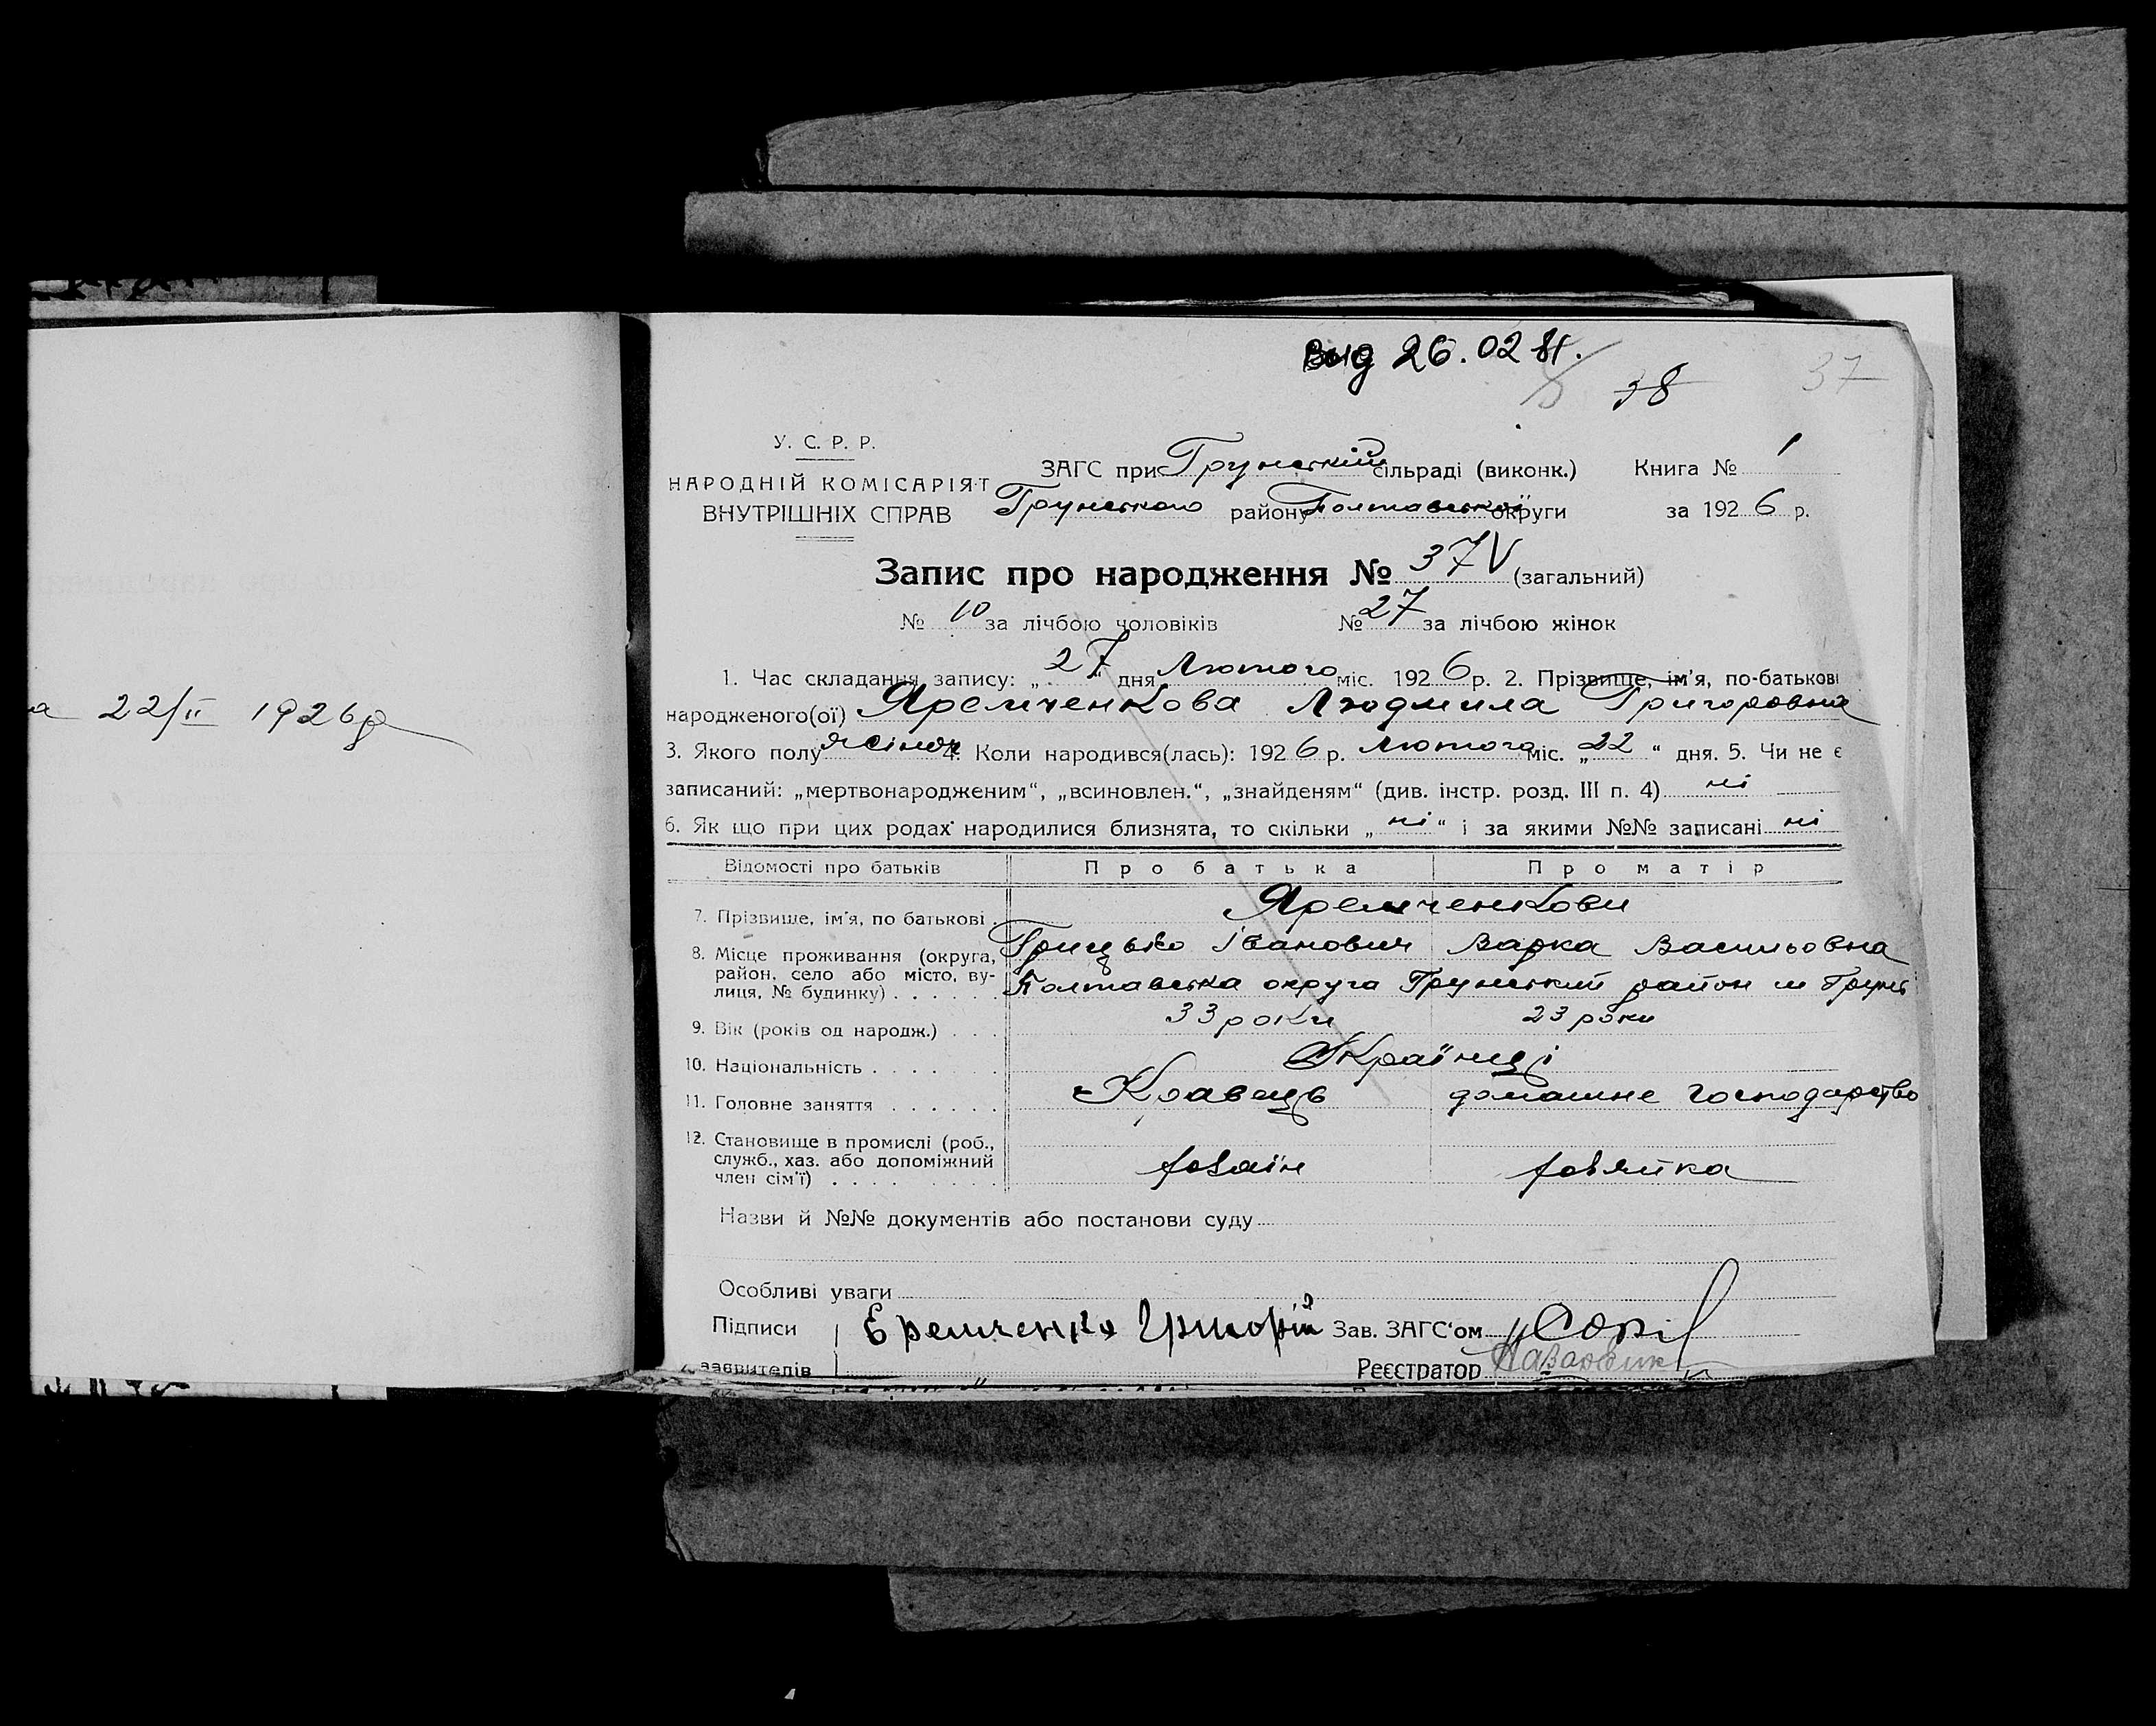 а 22/II 1926р
вид 26.02
38 37
У. С. Р. Р.
НАРОДНІЙ КОМІСАРІЯТ
ВНУТРІШНІХ СПРАВ
ЗАГС при Грунській сільраді (виконк.) Книга № 1
Грунського району Полтавської округи за 1926 р.
Запис про народження № 37 V (загальний)
№ 10 за лічбою чоловіків № 27 за лічбою жінок
1. Час складання запису: „27“ дня Лютого міс. 1926 р. 2. Прізвище, ім'я, по-батькові
народженого(ої) Яремченкова Людмила Григоровна
3. Якого полу жіноч 4. Коли народився(лась): 1926 р. Лютого міс. „22“ дня. 5. Чи не є
записаний: „мертвонародженим“, „всиновлен.“, „знайденям“ (див. інстр. розд. III п. 4) ні
6. Як що при цих родах народилися близнята, то скільки „ні“ і за якими №№ записані ні
Відомості про батьків Про батька Про матір
7. Прізвище, ім'я, по батькові . Яремченкови
Грицько Іванович Варка Васильовна
8. Місце проживання (округа,
район, село або місто, ву-
лиця, № будинку) . . . . . . Полтавська округа Грунський район м Грунь
9. Вік (років од народж.) . . . 33 роки 23 роки
10. Національність . . . . . . . Українці
11. Головне заняття . . . . . . Кравець домашне господарство
12. Становище в промислі (роб.,
служб., хаз. або допоміжний
член сім'ї) . . . . . . . . хазаїн хазяйка
Назви й №№ документів або постанови суду
Особливі уваги
Підписи Еремченко Григорій Зав. ЗАГС'ом
заявителів Реєстратор